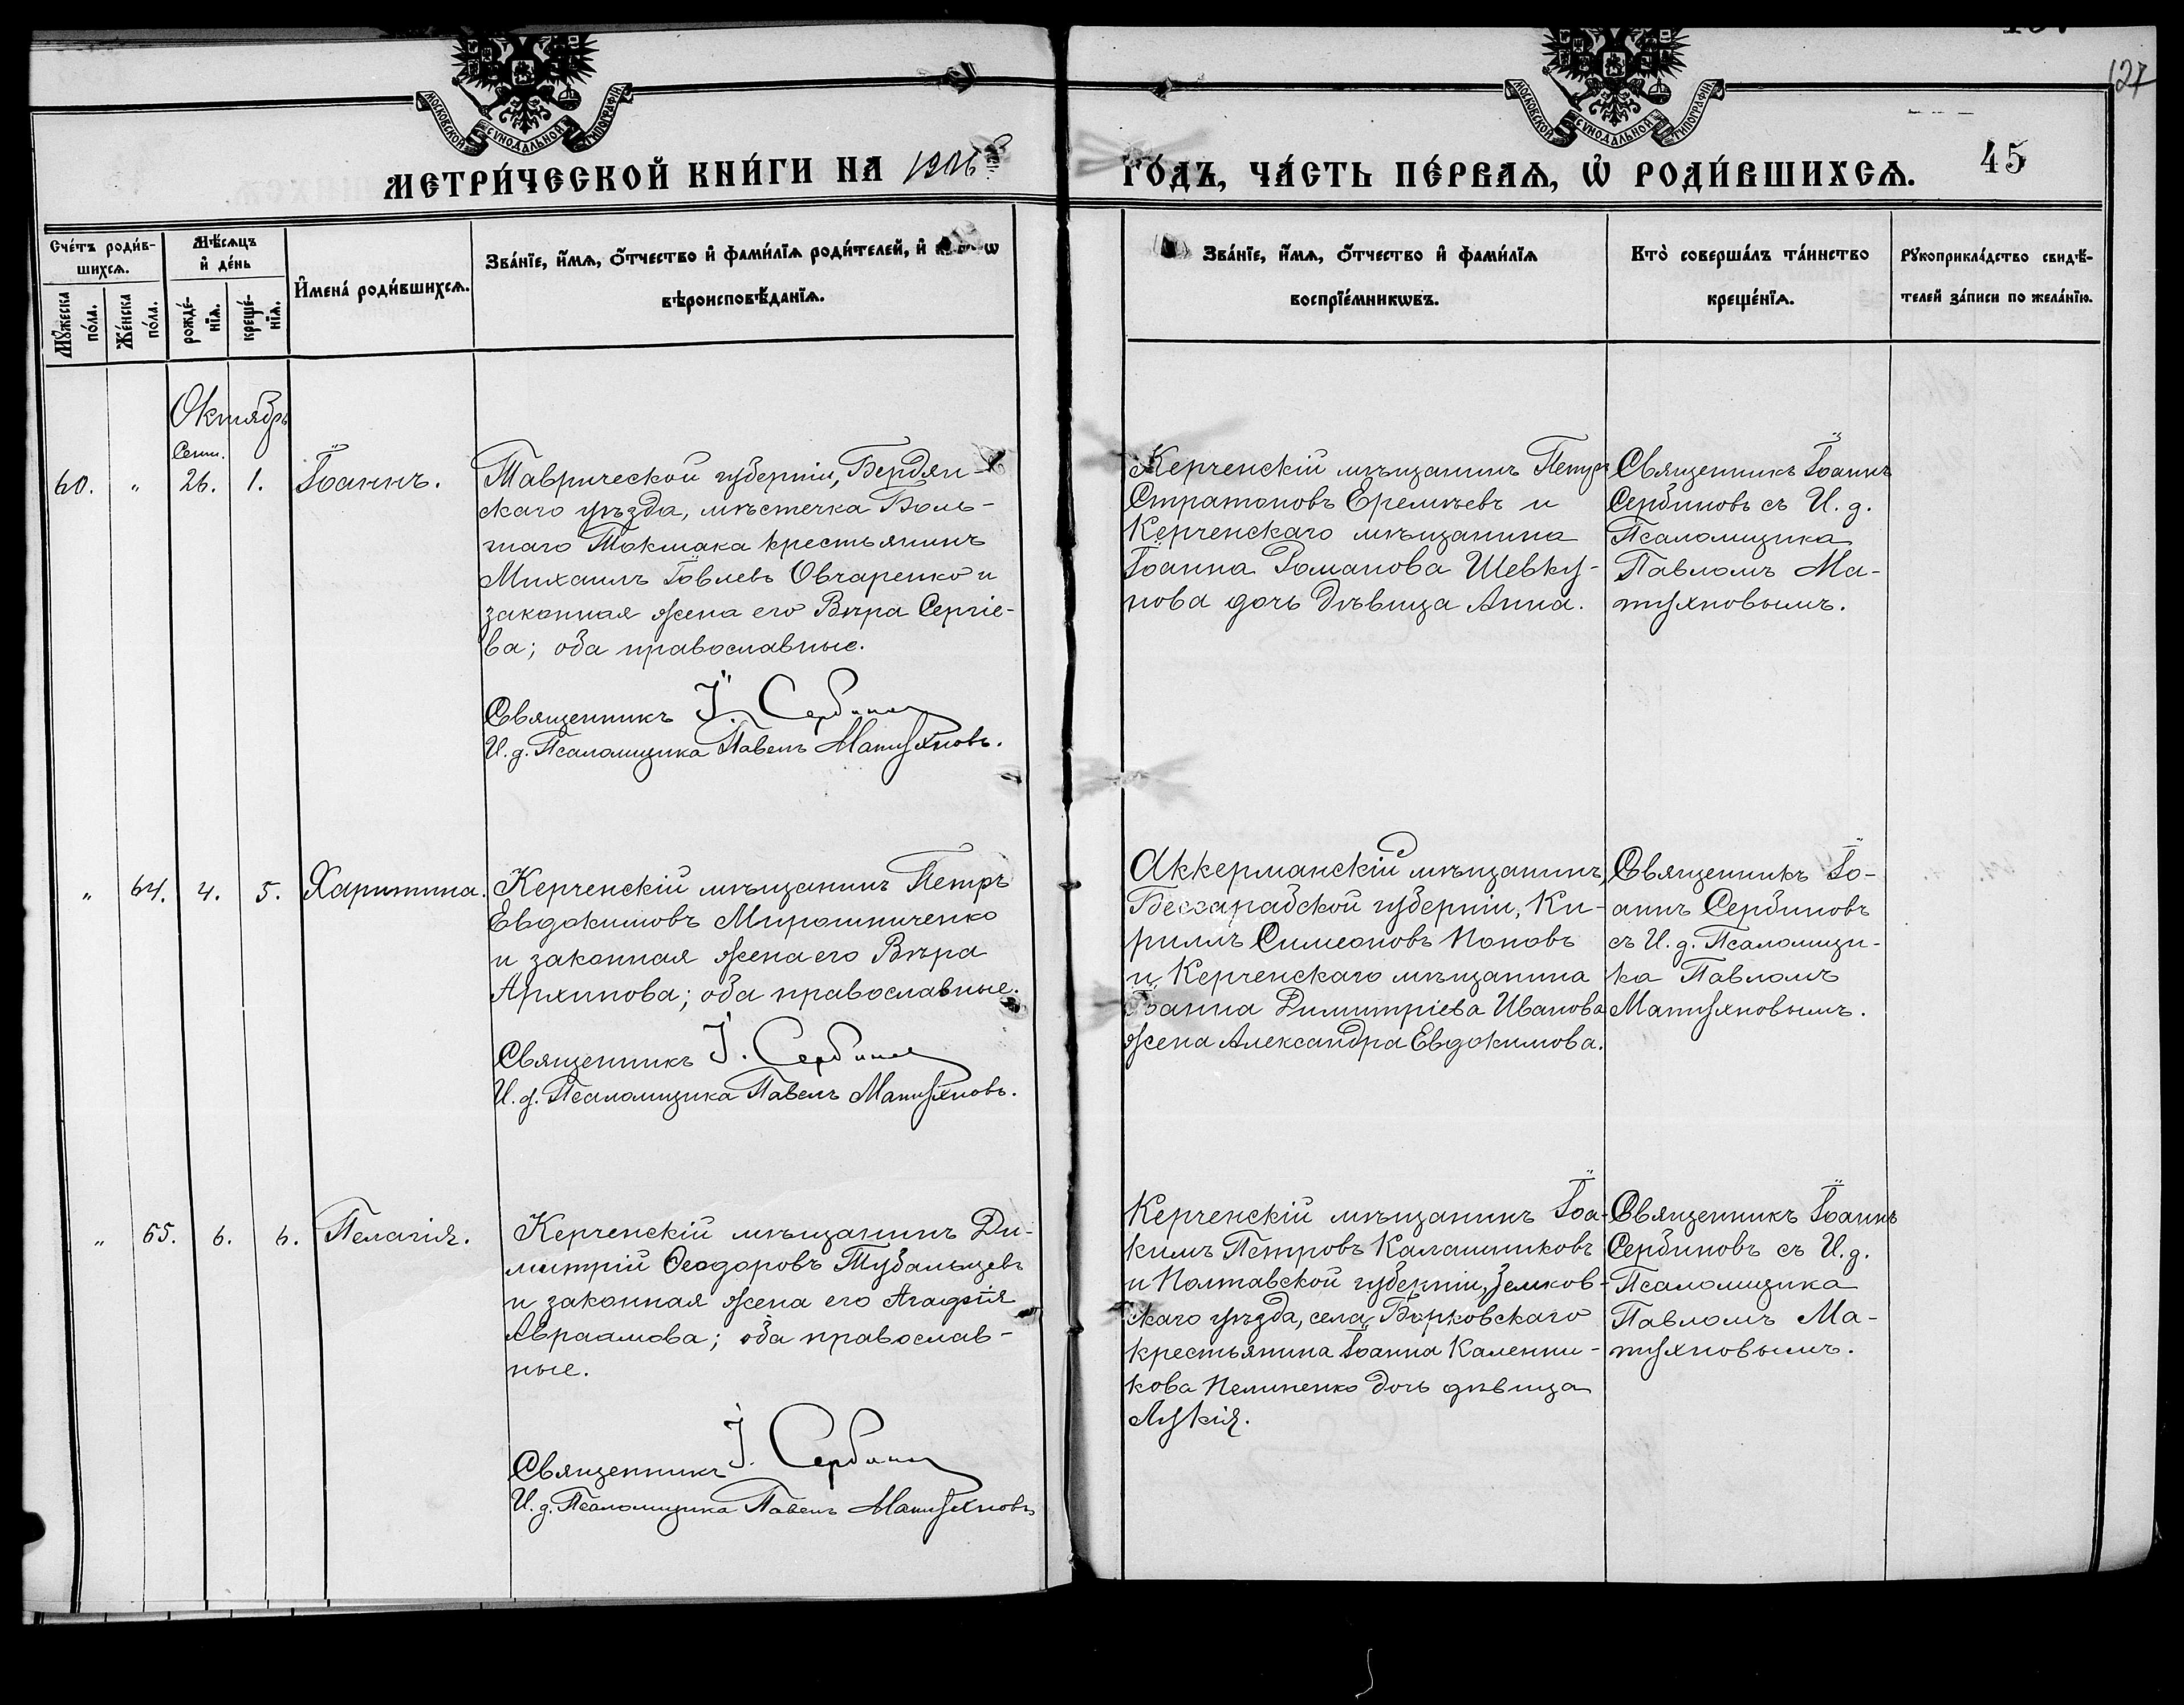 127
МОСКОВСКОЙ СѴНОДАЛЬНОЙ ТИПОГРАФІИ
МОСКОВСКОЙ СѴНОДАЛЬНОЙ ТИПОГРАФІИ
МЕТРИ́ЧЕСКОЙ КНИ́ГИ НА 1906
ГО́ДЪ, ЧА́СТЬ ПЕ́РВАѦ, Ѡ҆ РОДИ́ВШИХСѦ.
45
Сче́тъ роди́в-
шихсѧ.
Мѣ́сѧцъ
и҆ де́нь
Мꙋ́жеска по́ла.
Же́нска по́ла.
рожде́-
нїѧ.
креще́-
нїѧ.
И҆мена̀ роди́вшихсѧ.
Зва́нїе, и҆́мѧ, ѻ҆́тчество и҆ фами́лїѧ роди́телей, и҆
вѣроисповѣ́данїѧ.
Зва́нїе, и҆́мѧ, ѻ҆́тчество и҆ фами́лїѧ
воспрїе́мникѡвъ.
Кто̀ соверша́лъ та́инство
креще́нїѧ.
Рꙋкоприкла́дство свидѣ́-
телей за́писи по жела́нїю.
Октябрь
60.
"
Сент.
26.
1.
Іоаннъ.
Таврической губерніи, Бердян-
скаго уѣзда, мѣстечка Боль-
шаго Токмака крестьянинъ
Михаилъ Іовлевъ Овчаренко и
законная жена его Вѣра Сергіе-
ва; оба православные.
Священникъ І. Сербинов
И. д. Псаломщика Павелъ Матухновъ.
Керченскій мѣщанинъ Петръ
Стратоновъ Еремѣевъ и
Керченскаго мѣщанина
Іоанна Романова Шевку-
нова дочь дѣвица Анна.
Священникъ Іоаннъ
Сербиновъ съ И. д.
Псаломщика
Павломъ Ма-
тухновымъ.
"
64.
4.
5.
Харитина.
Керченскій мѣщанинъ Петръ
Евдокимовъ Мирошниченко
и законная жена его Вѣра
Архипова; оба православные.
Священникъ І. Сербинов
И. д. Псаломщика Павелъ Матухновъ.
Аккерманскій мѣщанинъ,
Бессарабской губерніи, Ки-
риллъ Симеоновъ Поповъ
и Керченскаго мѣщанина
Іоанна Димитріева Иванова
жена Александра Евдокимова.
Священникъ Іо-
аннъ Сербиновъ
съ И. д. Псаломщи-
ка Павломъ
Матухновымъ.
"
65.
6.
6.
Пелагія.
Керченскій мѣщанинъ Ди-
митрій Ѳеодоровъ Тубальцевъ
и законная жена его Агафія
Авраамова; оба православ-
ные.
Священникъ І. Сербинов
И. д. Псаломщика Павелъ Матухновъ
Керченскій мѣщанинъ Іоа-
кимъ Петровъ Калашниковъ
и Полтавской губерніи, Зеньков-
скаго уѣзда, села Борковскаго
крестьянина Іоанна Каленни-
кова Пелипенко дочь дѣвица
Лукія.
Священникъ Іоаннъ
Сербиновъ съ И. д.
Псаломщика
Павломъ Ма-
тухновымъ.